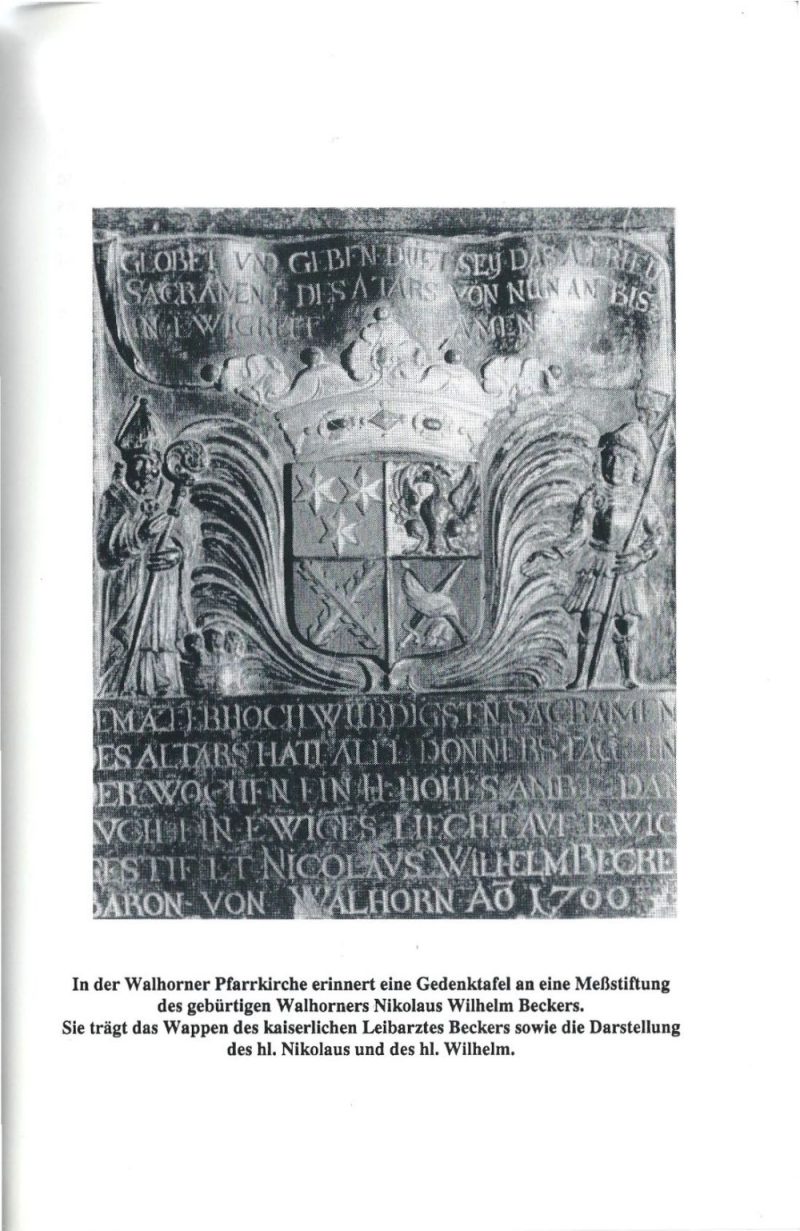 GLOBET VND GEBEN DEIET SEŸ DAS ALFRIED
SACRAMENT DES ATARS VON NUN AN BIS
IN EWIGKEIT AMEN
EM ALERHOCHWÜRDIGSTEN SACRAMEN
ES ALTARS HATT ALLE DONNERSTAG IN
ER WOCHEN EIN H: HOHES AMBT DAN
VCH EIN EWIGES LIECHT AVF EWIG
GESTIFTET NICOLAVS WILHELM BECKE
BARON VON WALHORN AO 1700
In der Walhorner Pfarrkirche erinnert eine Gedenktafel an eine Meßstiftung
des gebürtigen Walhorners Nikolaus Wilhelm Beckers.
Sie trägt das Wappen des kaiserlichen Leibarztes Beckers sowie die Darstellung
des hl. Nikolaus und des hl. Wilhelm.